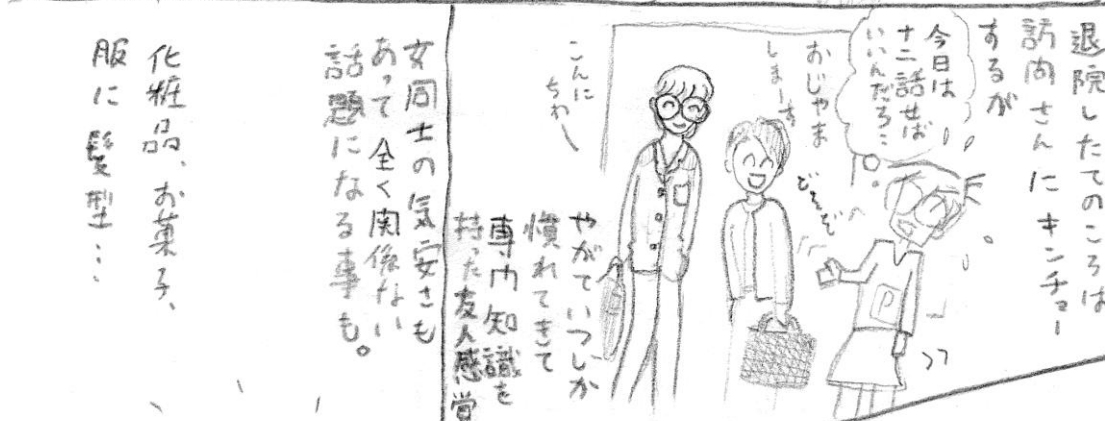 退院したてのころは
訪問さんにキンチョー
するが
今日は
十二話せば
いいんだろ…
おじゃま
しまーす
どーぞ
こんに
ちわー
やがていつしか
慣れてきて
専門知識を
持った友人感覚
女同士の気安さも
あって全く関係ない
話題になる事も。
化粧品、お菓子、
服に髪型…